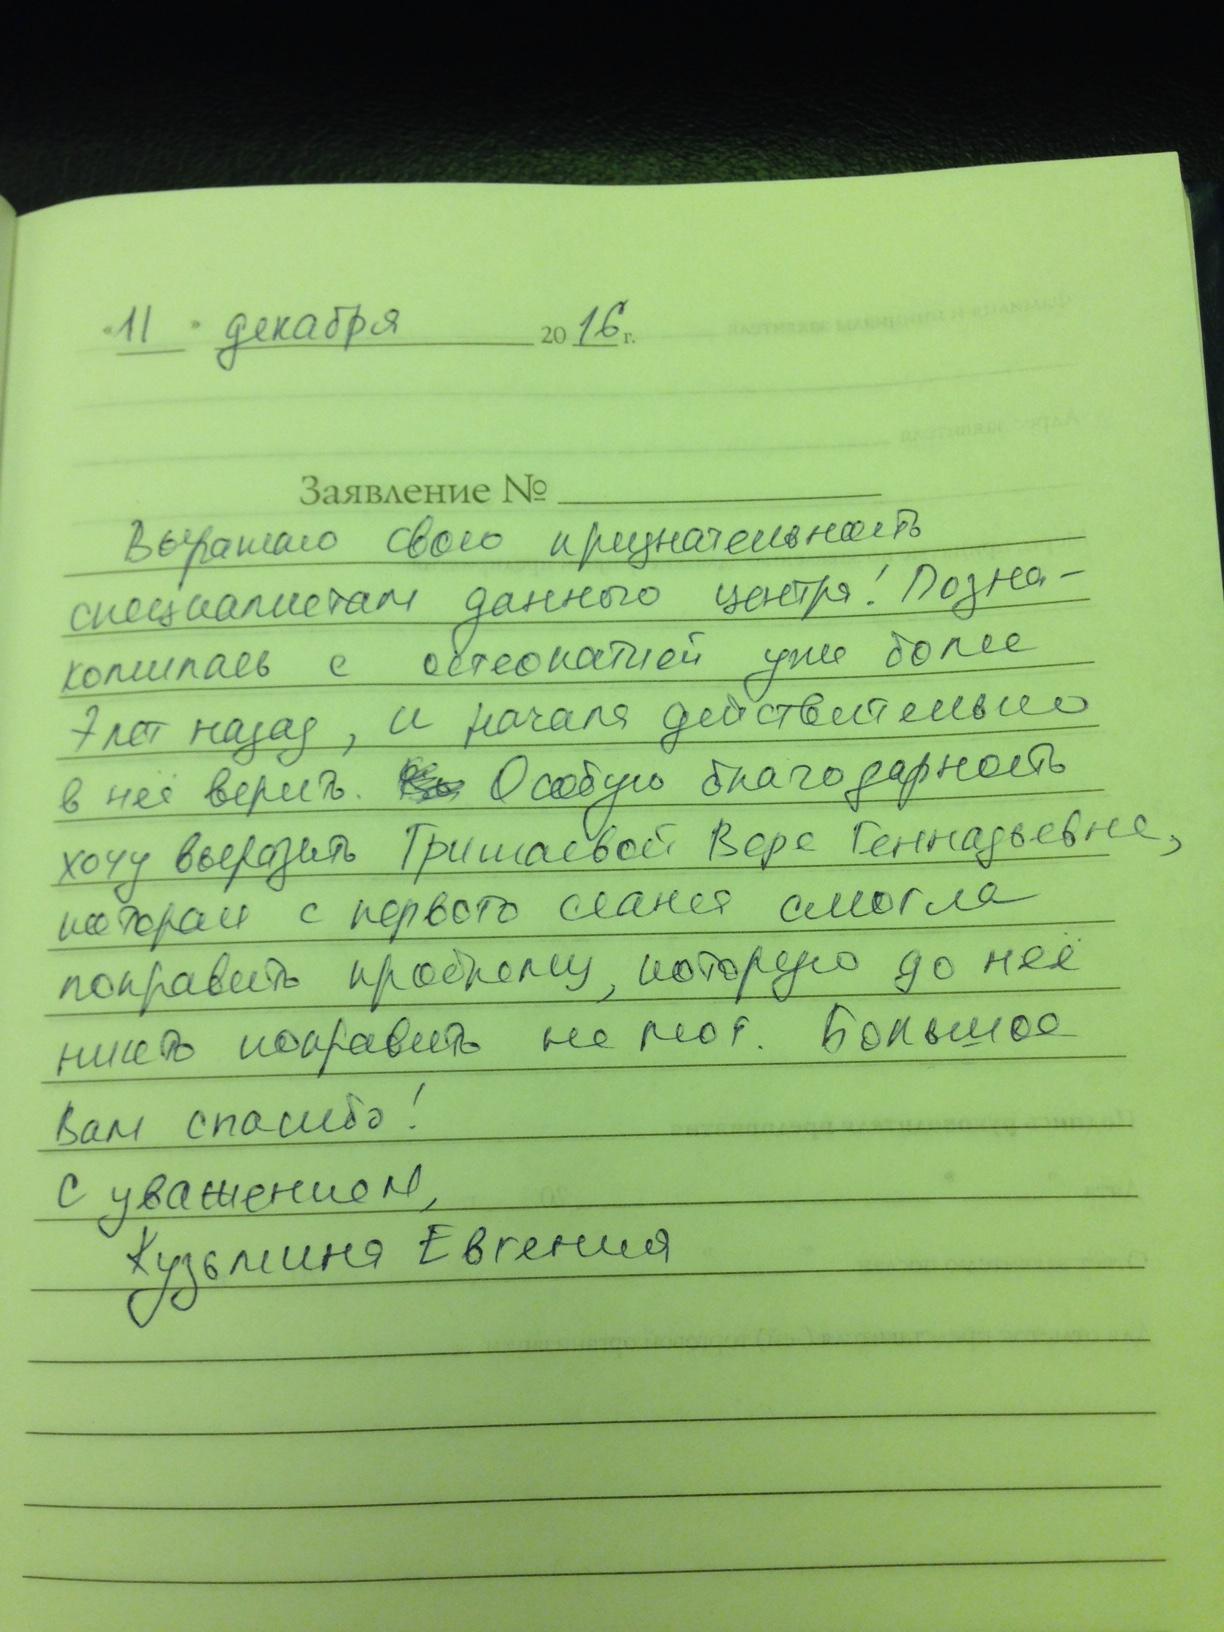 «11» декабря 2016 г.
Заявление №
Выражаю свою признательность
специалистам данного центра! Позна-
комилась с остеопатией уже более
7 лет назад, и начала действительно
в неё верить. Особую благодарность
хочу выразить Гришаевой Вере Геннадьевне,
которая с первого сеанса смогла
поправить проблему, которую до неё
никто поправить не мог. Большое
Вам спасибо!
С уважением,
Кузьмина Евгения